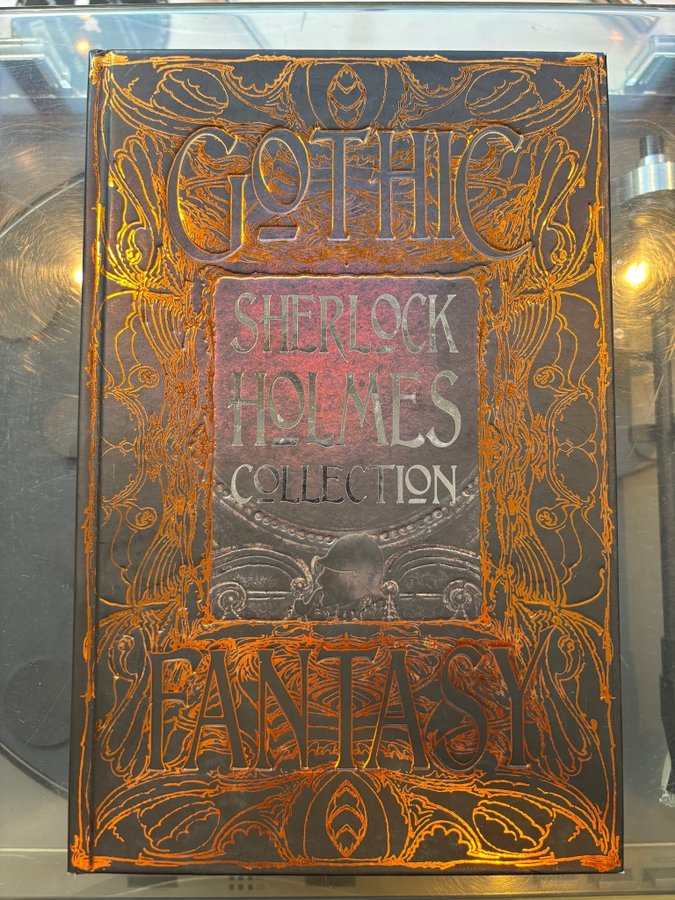 GOTHIC
SHERLOCK
HOLMES
COLLECTION
FANTASY